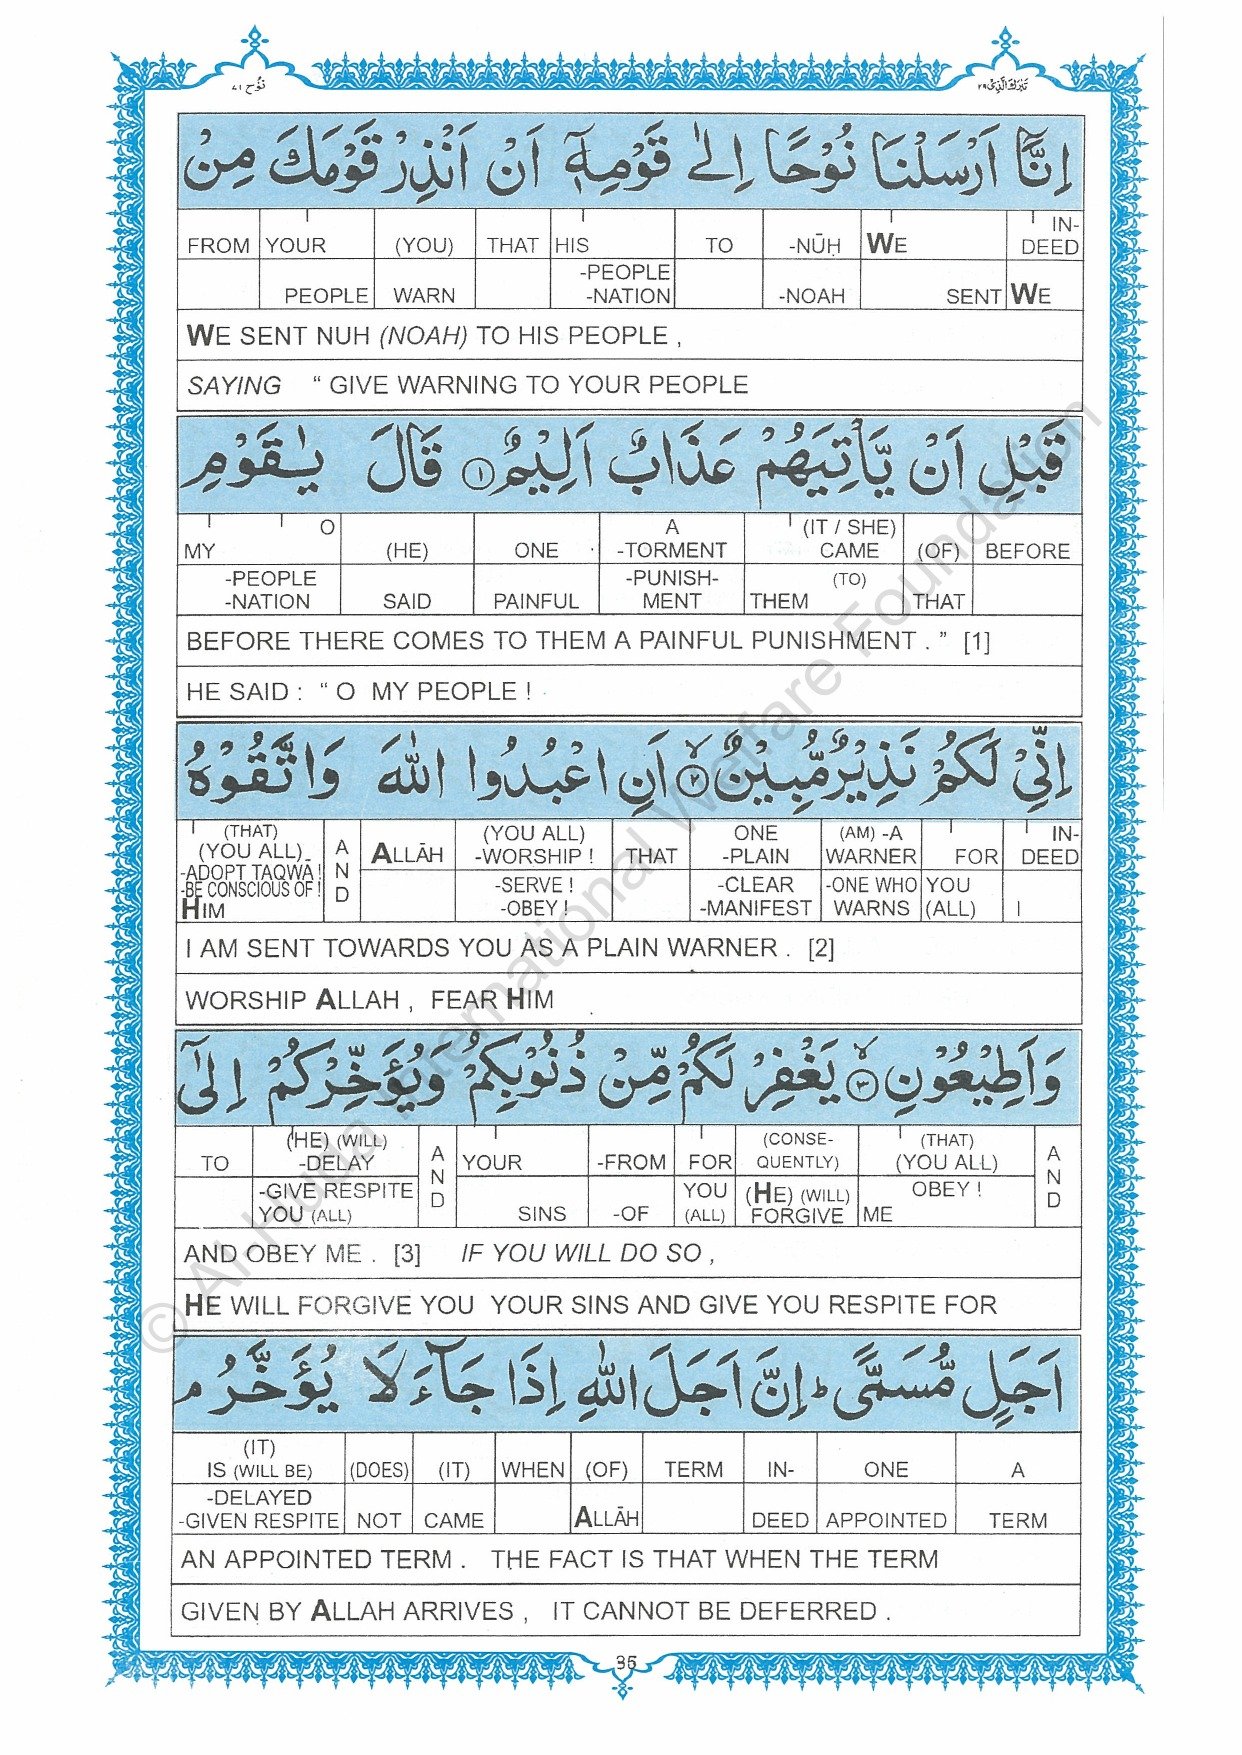 نُوْح ٧١
تَبٰرَكَ الَّذِىْ ٢٩
اِنَّاۤ اَرْسَلْنَا نُوْحًا اِلٰى قَوْمِهٖۤ اَنْ اَنْذِرْ قَوْمَكَ مِنْ
FROM YOUR (YOU) THAT HIS TO -NŪḤ WE IN-
DEED
PEOPLE WARN -PEOPLE
-NATION -NOAH SENT WE
WE SENT NUH (NOAH) TO HIS PEOPLE ,
SAYING “ GIVE WARNING TO YOUR PEOPLE
قَبْلِ اَنْ يَّاْتِيَهُمْ عَذَابٌ اَلِيْمٌ ١ قَالَ يٰقَوْمِ
O A (IT / SHE)
MY (HE) ONE -TORMENT CAME (OF) BEFORE
-PEOPLE -PUNISH- (TO)
-NATION SAID PAINFUL MENT THEM THAT
BEFORE THERE COMES TO THEM A PAINFUL PUNISHMENT . ” [1]
HE SAID : “ O MY PEOPLE !
اِنِّىْ لَكُمْ نَذِيْرٌ مُّبِيْنٌ ٢ اَنِ اعْبُدُوا اللّٰهَ وَاتَّقُوْهُ
(THAT) A (YOU ALL) ONE (AM) -A IN-
(YOU ALL) N ALLĀH -WORSHIP ! THAT -PLAIN WARNER FOR DEED
-ADOPT TAQWA ! D -SERVE ! -CLEAR -ONE WHO YOU
-BE CONSCIOUS OF !
HIM -OBEY ! -MANIFEST WARNS (ALL) I
I AM SENT TOWARDS YOU AS A PLAIN WARNER . [2]
WORSHIP ALLAH , FEAR HIM
وَاَطِيْعُوْنِ ٣ يَغْفِرْ لَكُمْ مِّنْ ذُنُوْبِكُمْ وَيُؤَخِّرْكُمْ اِلٰٓى
(HE) (WILL) A (CONSE- (THAT) A
TO -DELAY N YOUR -FROM FOR QUENTLY) (YOU ALL) N
-GIVE RESPITE D YOU (HE) (WILL) OBEY ! D
YOU (ALL) SINS -OF (ALL) FORGIVE ME
AND OBEY ME . [3] IF YOU WILL DO SO ,
HE WILL FORGIVE YOU YOUR SINS AND GIVE YOU RESPITE FOR
اَجَلٍ مُّسَمًّى ؕ اِنَّ اَجَلَ اللّٰهِ اِذَا جَآءَ لَا يُؤَخَّرُ م
(IT)
IS (WILL BE) (DOES) (IT) WHEN (OF) TERM IN- ONE A
-DELAYED
-GIVEN RESPITE NOT CAME ALLĀH DEED APPOINTED TERM
AN APPOINTED TERM . THE FACT IS THAT WHEN THE TERM
GIVEN BY ALLAH ARRIVES , IT CANNOT BE DEFERRED .
36
© Al-Huda International Welfare Foundation